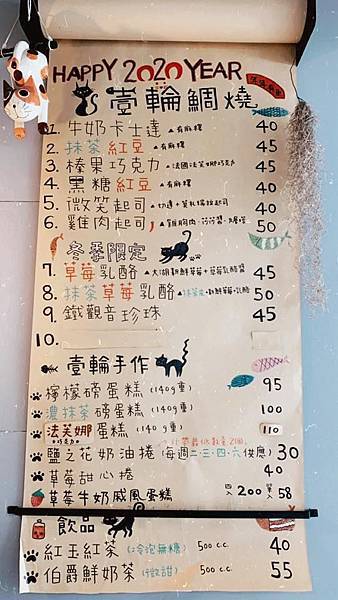 HAPPY 2020 YEAR
壹輪鯛燒
1. 牛奶卡士達 ▲有麻糬 40
2. 抹茶紅豆 ▲有麻糬 45
3. 榛果巧克力 ▲法國法芙娜巧克力 45
4. 黑糖紅豆 ▲有麻糬 40
5. 微笑起司 40
6. 雞肉起司 50
冬季限定
7. 草莓乳酪 45
8. 抹茶草莓乳酪 50
9. 鐵觀音珍珠 45
10.
壹輪手作
檸檬磅蛋糕(140g重) 95
濃抹茶磅蛋糕(140g重) 100
法芙娜巧克力蛋糕(140g重) 110
鹽之花奶油捲(每週二.三.四.六供應) 30
草莓甜心捲 40
草莓牛奶戚風蛋糕 四入200 單入58
飲品
紅玉紅茶(冷泡無糖) 500c.c. 40
伯爵鮮奶茶(微甜) 500c.c. 55